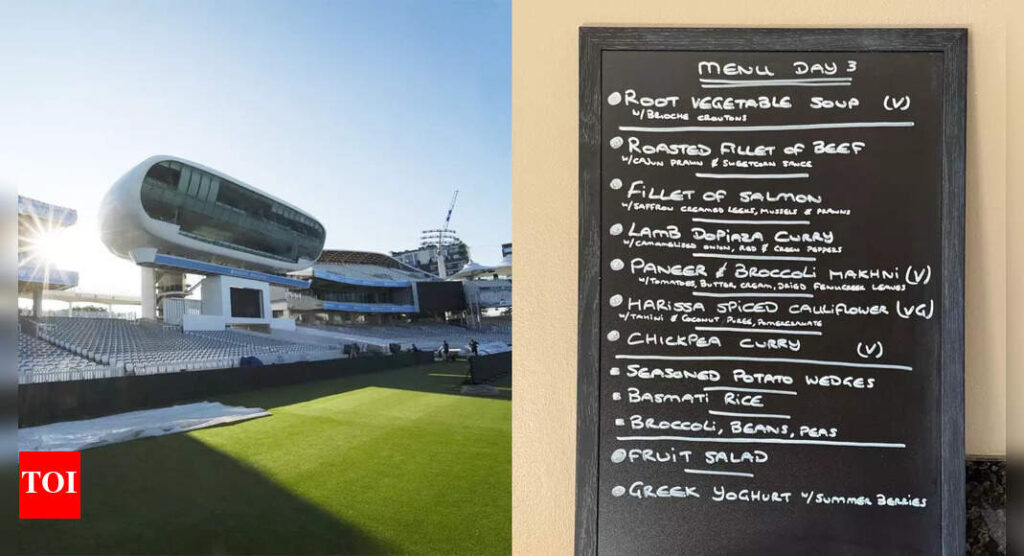 TOI
MENU DAY 3
ROOT VEGETABLE SOUP (V)
W/BRIOCHE CROUTONS
ROASTED FILLET OF BEEF
W/CAJUN PRAWN & SWEETCORN SAUCE
FILLET OF SALMON
W/SAFFRON CREAMED LEEKS, MUSSELS & PRAWNS
LAMB DOPIAZA CURRY
W/CARAMELISED ONION, RED & GREEN PEPPERS
PANEER & BROCCOLI MAKHNI (V)
W/TOMATOES, BUTTER, CREAM, DRIED FENUGREEK LEAVES
HARISSA SPICED CAULIFLOWER (VG)
W/TAHINI & COCONUT PUREE, POMEGRANATE
CHICKPEA CURRY (V)
SEASONED POTATO WEDGES
BASMATI RICE
BROCCOLI, BEANS, PEAS
FRUIT SALAD
GREEK YOGHURT W/SUMMER BERRIES